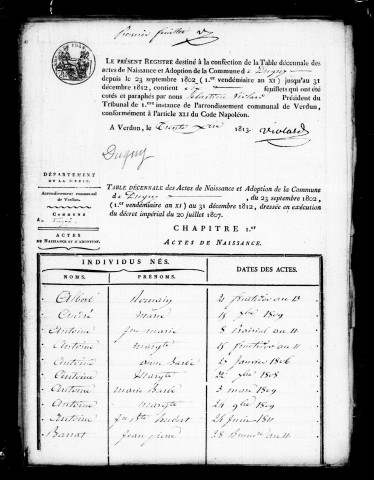 Premier feuillet
LE PRÉSENT REGISTRE destiné à la confection de la Table décennale des
actes de Naissance et Adoption de la Commune de Dugny
depuis le 23 septembre 1802 (1.er vendémiaire an XI) jusqu'au 31
décembre 1812, contient feuillets qui ont été
cotés et paraphés par nous Président du
Tribunal de 1.ere instance de l'arrondissement communal de Verdun,
conformément à l'article XLI du Code Napoléon.
A Verdun, le 1813.
Dugny
DÉPARTEMENT
DE LA MEUSE.
Arrondissement communal
de Verdun.
COMMUNE
ACTES
DE NAISSANCE ET D'ADOPTION.
TABLE DÉCENNALE des Actes de Naissance et Adoption de la Commune
de Dugny, du 23 septembre 1802,
(1.er vendémiaire an XI) au 31 décembre 1812, dressée en exécution
du décret impérial du 20 juillet 1807.
CHAPITRE I.er
ACTES DE NAISSANCE.
INDIVIDUS NÉS.
NOMS. PRÉNOMS. DATES DES ACTES.
Albert 21 fructidor an 13
André Marie 15 1809
Antoine marie 8 prairial an 11
Antoine margte 15 fructidor an 11
Antoine anne barbe 27 janvier 1806
Antoine margte 22 1808
Antoine marie barbe 3 mars 1809
Antoine margte 24 1809
Antoine hubert 26 juin 1811
Barrat jean pierre 28 an 11